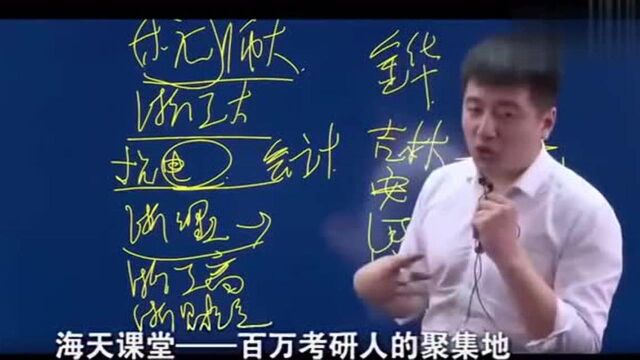 师大
浙工大
杭电 会计
浙理→
浙工商
浙财经
金华
吉林
安
海天课堂——百万考研人的聚集地